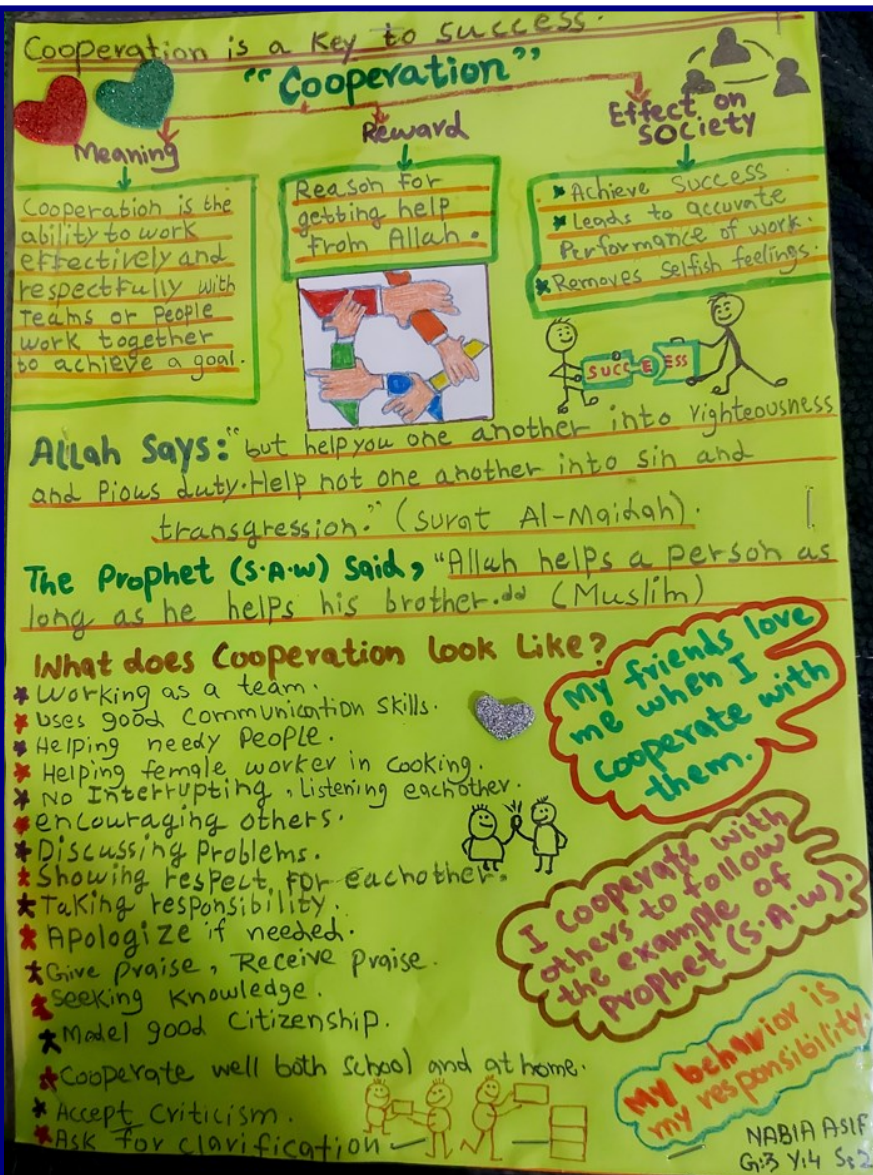 Cooperation is a Key to success.
"Cooperation"
Meaning
Cooperation is the
ability to work
effectively and
respectfully with
Teams or People
work together
to achieve a goal.
Reward
Reason For
getting help
From Allah.
Effect on
SOCIETY
Achieve Success
Leads to accurate
Performance of work.
Removes Selfish feelings.
SUCC E ESS
Allah Says: "but help you one another into righteousness
and Pious duty. Help not one another into sin and
transgression." (surat Al-Maidah).
The Prophet (S.A.W) Said, "Allah helps a person as
long as he helps his brother." (Muslim)
What does Cooperation look Like?
Working as a team.
Uses good Communication Skills.
Helping needy People.
Helping female worker in Cooking.
No Interrupting, Listening eachother.
encouraging others.
Discussing Problems.
Showing respect for eachother.
Taking responsibility.
Apologize if needed.
Give Praise, Receive Praise.
Seeking Knowledge.
Model good Citizenship.
Cooperate well both School and at home.
Accept Criticism.
Ask for clarification
My friends love
me when I
cooperate with
them.
I Cooperate with
others to follow
the example of
Prophet (S.A.W).
My behavior is
my responsibility.
NABIA ASIF
G:3 Y:4 S:2